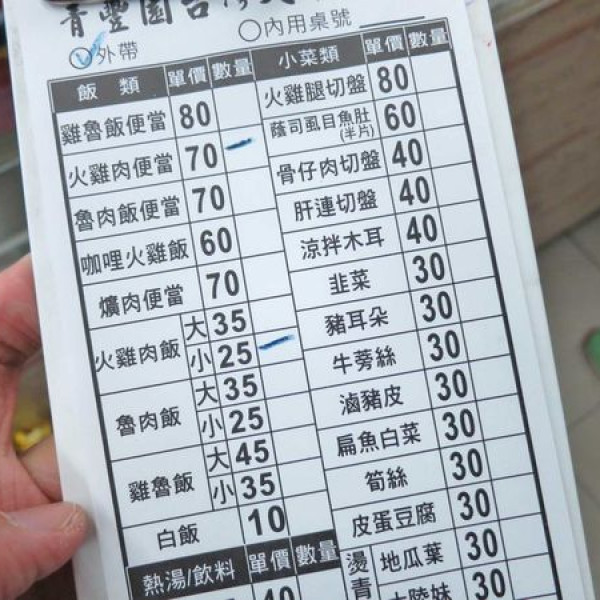 青豐園台
外帶 內用桌號
飯類 單價 數量
雞魯飯便當 80
火雞肉便當 70
魯肉飯便當 70
咖哩火雞飯 60
爌肉便當 70
火雞肉飯 大 35
小 25
魯肉飯 大 35
小 25
雞魯飯 大 45
小 35
白飯 10
熱湯/飲料 單價 數量
40
小菜類 單價 數量
火雞腿切盤 80
蔭司虱目魚肚(半片) 60
骨仔肉切盤 40
肝連切盤 40
涼拌木耳 40
韭菜 30
豬耳朵 30
牛蒡絲 30
滷豬皮 30
扁魚白菜 30
筍絲 30
皮蛋豆腐 30
燙青 地瓜葉 30
大陸妹 30